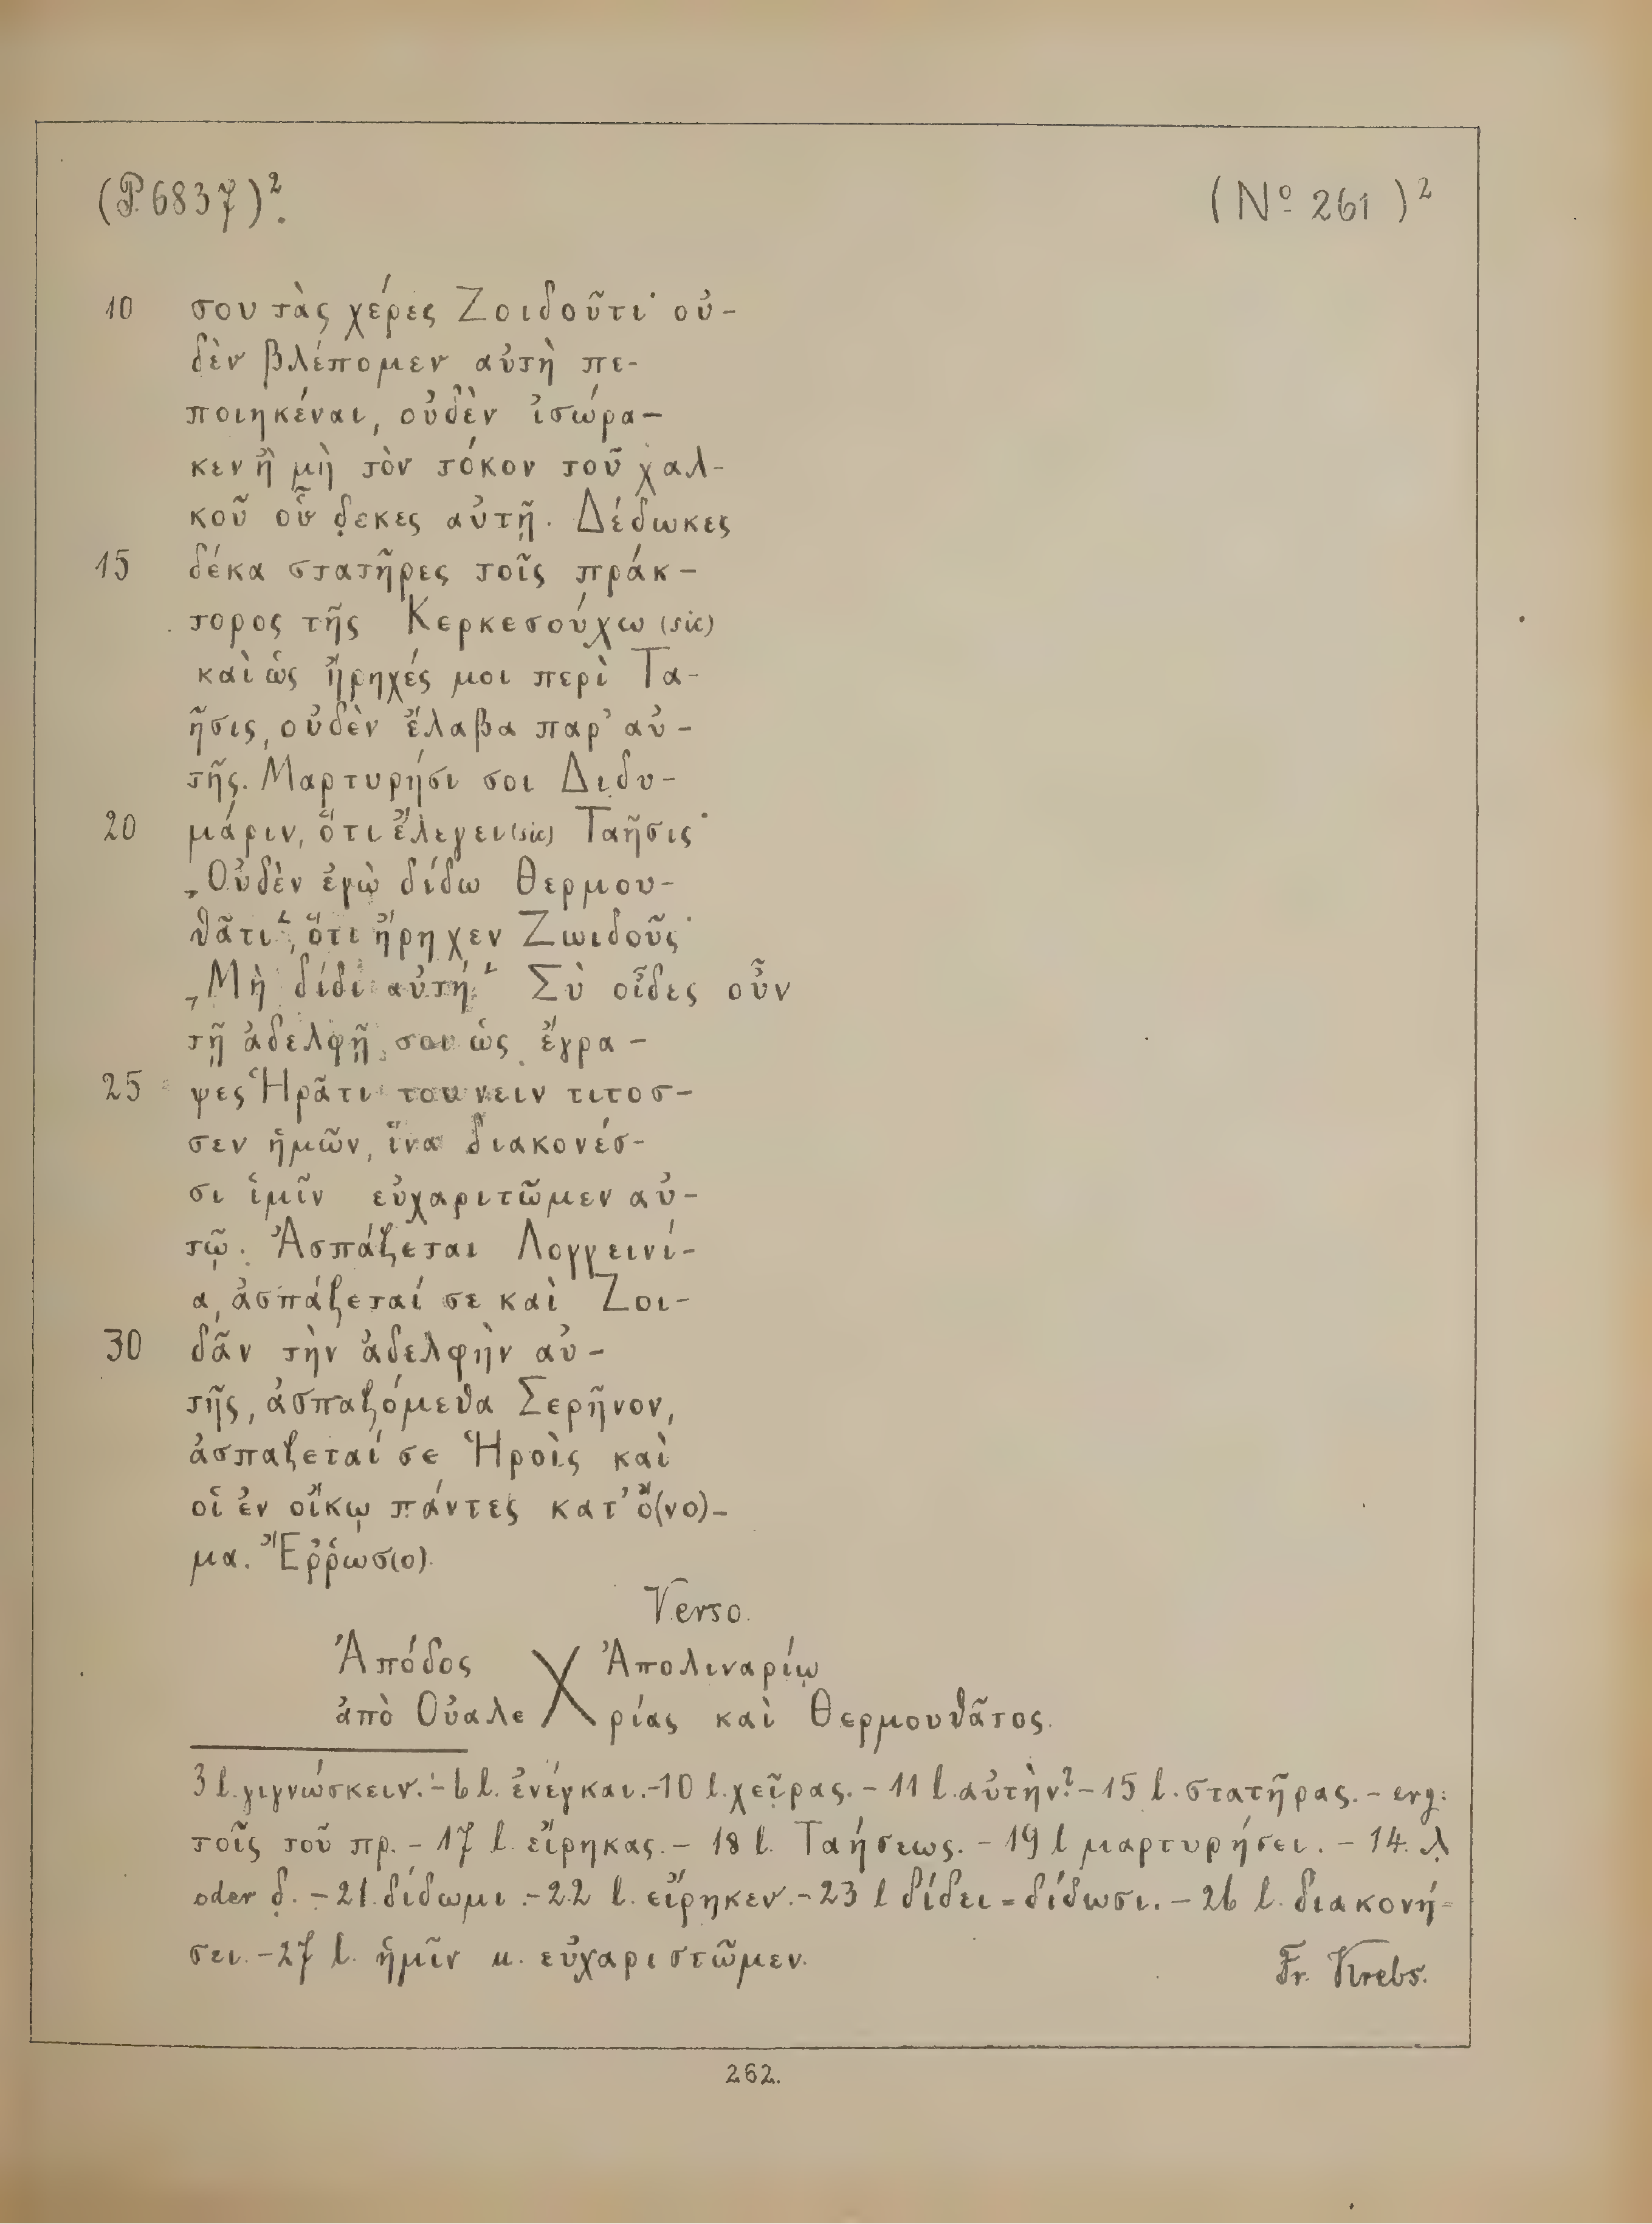 (P. 6837)².
(Nº 261)²
10 σου τὰς χέρες Ζοιδοῦτι· οὐ-
δὲν βλέπομεν αὐτὴ πε-
ποιηκέναι, οὐδὲν ἰσώρα-
κεν ἢ μὴ τὸν τόκον τοῦ χαλ-
κοῦ οὗ δ̣εκες αὐτῇ. Δέδωκες
15 δέκα στατῆρες τοῖς πράκ-
τορος τῆς Κερκεσούχω (sic)
καὶ ὡς ἤρηχές μοι περὶ Τα-
ῆσις, οὐδὲν ἔλαβα παρ' αὐ-
τῆς. Μαρτυρήσι σοι Διδυ-
20 μάριν, ὅτι ἔλεγει (sic) Ταῆσις·
„Οὐδὲν ἐγὼ δίδω Θερμου-
θᾶτι“, ὅτι ἤρηχεν Ζωιδοῦς·
„Μὴ δίδι αὐτή“ Σὺ οἶδες οὖν
τῇ ἀδελφῇ σου ὡς ἔγρα-
25 ψες Ἡρᾶτι του νειν τιτοσ-
σεν ἡμῶν, ἵνα διακονέσ-
σι ἱμῖν εὐχαριτῶμεν αὐ-
τῷ. Ἀσπάζεται Λογγεινί-
α, ἀσπάζεταί σε καὶ Ζοι-
30 δᾶν τὴν ἀδελφὴν αὐ-
τῆς, ἀσπαζόμεθα Σερῆνον,
ἀσπαζεταί σε Ἡροὶς καὶ
οἱ ἐν οἴκῳ πάντες κατ' ὄ(νο)-
μα. Ἔρῤωσ(ο).
Verso.
Ἀπόδος X Ἀπολιναρίῳ
ἀπὸ Οὐαλε ρίας καὶ Θερμουθᾶτος.
3 l. γιγνώσκειν. - 6 l. ἐνέγκαι. - 10 l. χεῖρας. - 11 l. αὐτὴν? - 15 l. στατῆρας. - erg:
τοῖς τοῦ πρ. - 17 l. εἴρηκας. - 18 l. Ταήσεως. - 19 l μαρτυρήσει. - 14. λ̣
oder δ̣. - 21. δίδωμι. - 22 l. εἴρηκεν. - 23 l δίδει = δίδωσι. - 26 l. διακονή-
σει. - 27 l. ἡμῖν u. εὐχαριστῶμεν.
Fr. Krebs.
262.